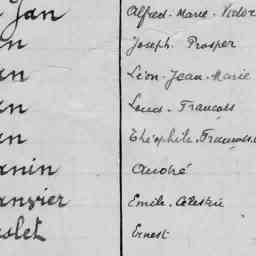 Jan Alfred-Marie-Victor
an Joseph-Prosper
an Léon-Jean-Marie
an Louis-François
an Théophile-François
anin André
anvier Emile-Célestin
colet Ernest